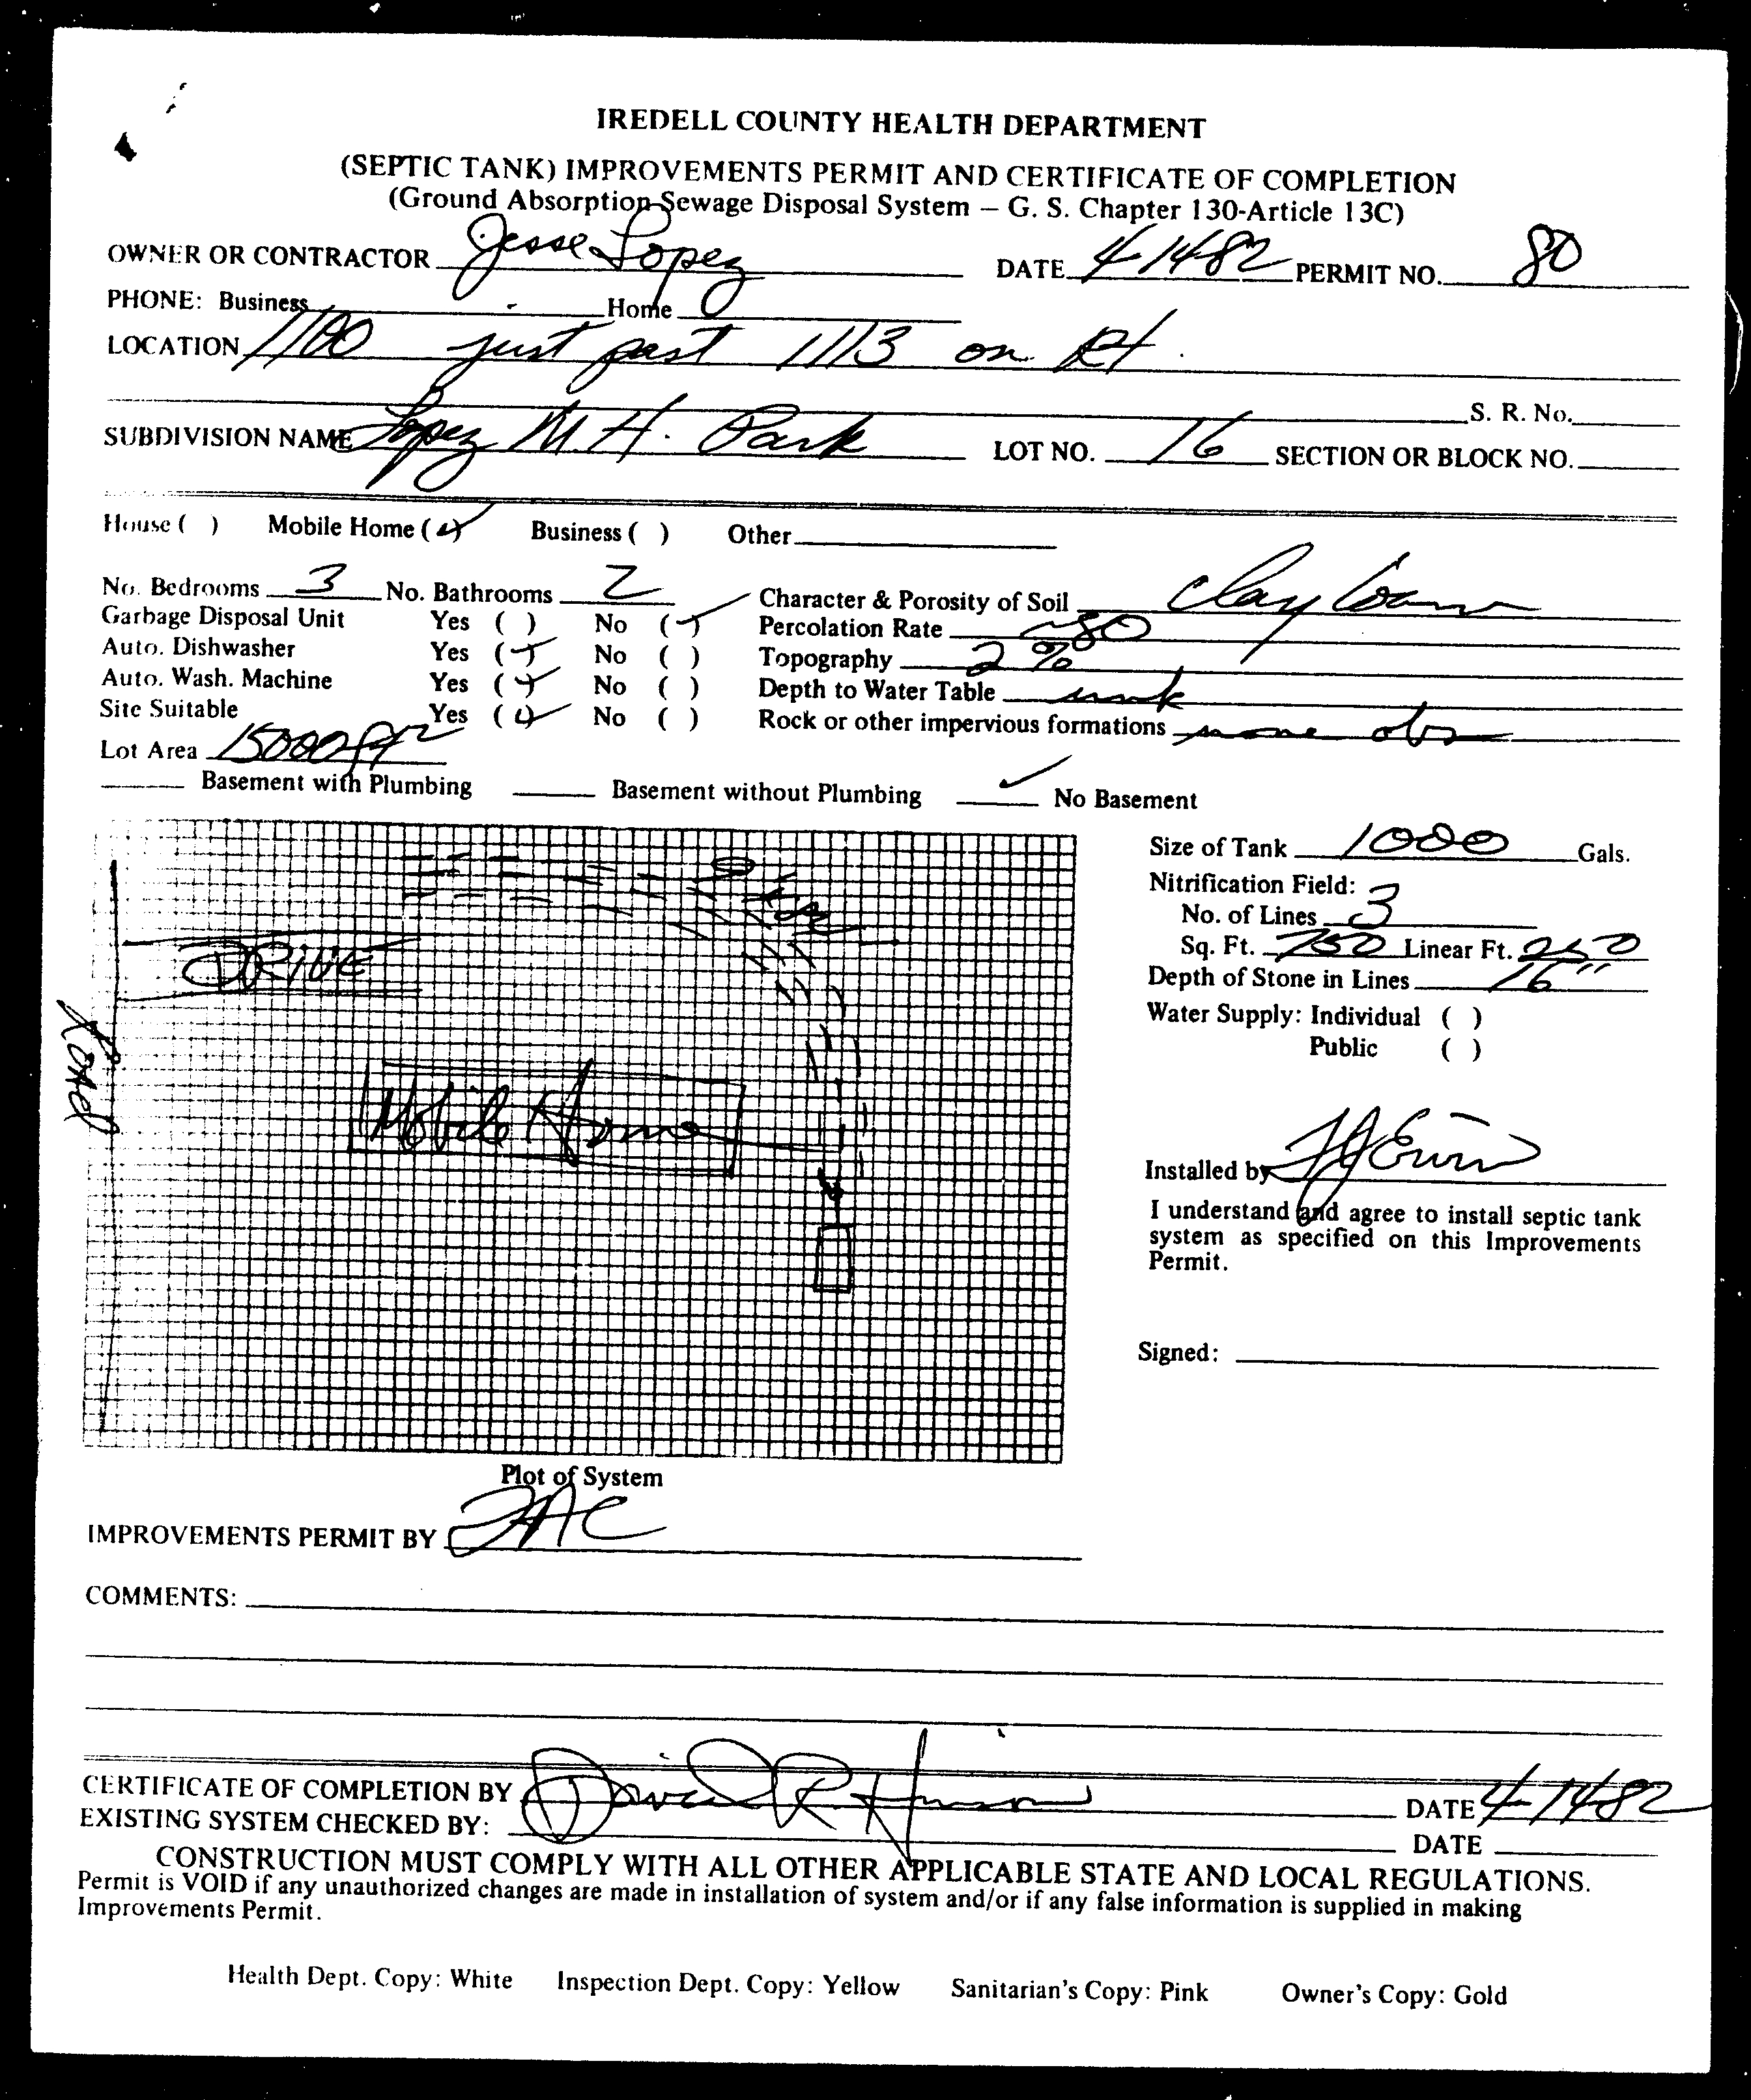 IREDELL COUNTY HEALTH DEPARTMENT
(SEPTIC TANK) IMPROVEMENTS PERMIT AND CERTIFICATE OF COMPLETION
(Ground Absorption Sewage Disposal System – G. S. Chapter 130-Article 13C)
OWNER OR CONTRACTOR Jesse Lopez DATE 4-14-82 PERMIT NO. 80
PHONE: Business Home
LOCATION 1100 just past 1113 on Rt.
S. R. No.
SUBDIVISION NAME Lopez M.H. Park LOT NO. 16 SECTION OR BLOCK NO.
House ( ) Mobile Home (✓) Business ( ) Other
No. Bedrooms 3 No. Bathrooms 2 Character & Porosity of Soil Clay loam
Garbage Disposal Unit Yes ( ) No (✓) Percolation Rate ~80
Auto. Dishwasher Yes (✓) No ( ) Topography 2%
Auto. Wash. Machine Yes (✓) No ( ) Depth to Water Table unk
Site Suitable Yes (✓) No ( ) Rock or other impervious formations none obs
Lot Area 15000 ft2
Basement with Plumbing Basement without Plumbing ✓ No Basement
Size of Tank 1000 Gals.
Nitrification Field:
No. of Lines 3
Sq. Ft. 750 Linear Ft. 250
Depth of Stone in Lines 16"
Water Supply: Individual ( )
Public ( )
DRIVE
Road
Mobile Home
Installed by
I understand and agree to install septic tank
system as specified on this Improvements
Permit.
Signed:
Plot of System
IMPROVEMENTS PERMIT BY
COMMENTS:
CERTIFICATE OF COMPLETION BY David R. DATE 4-14-82
EXISTING SYSTEM CHECKED BY: DATE
CONSTRUCTION MUST COMPLY WITH ALL OTHER APPLICABLE STATE AND LOCAL REGULATIONS.
Permit is VOID if any unauthorized changes are made in installation of system and/or if any false information is supplied in making
Improvements Permit.
Health Dept. Copy: White Inspection Dept. Copy: Yellow Sanitarian's Copy: Pink Owner's Copy: Gold